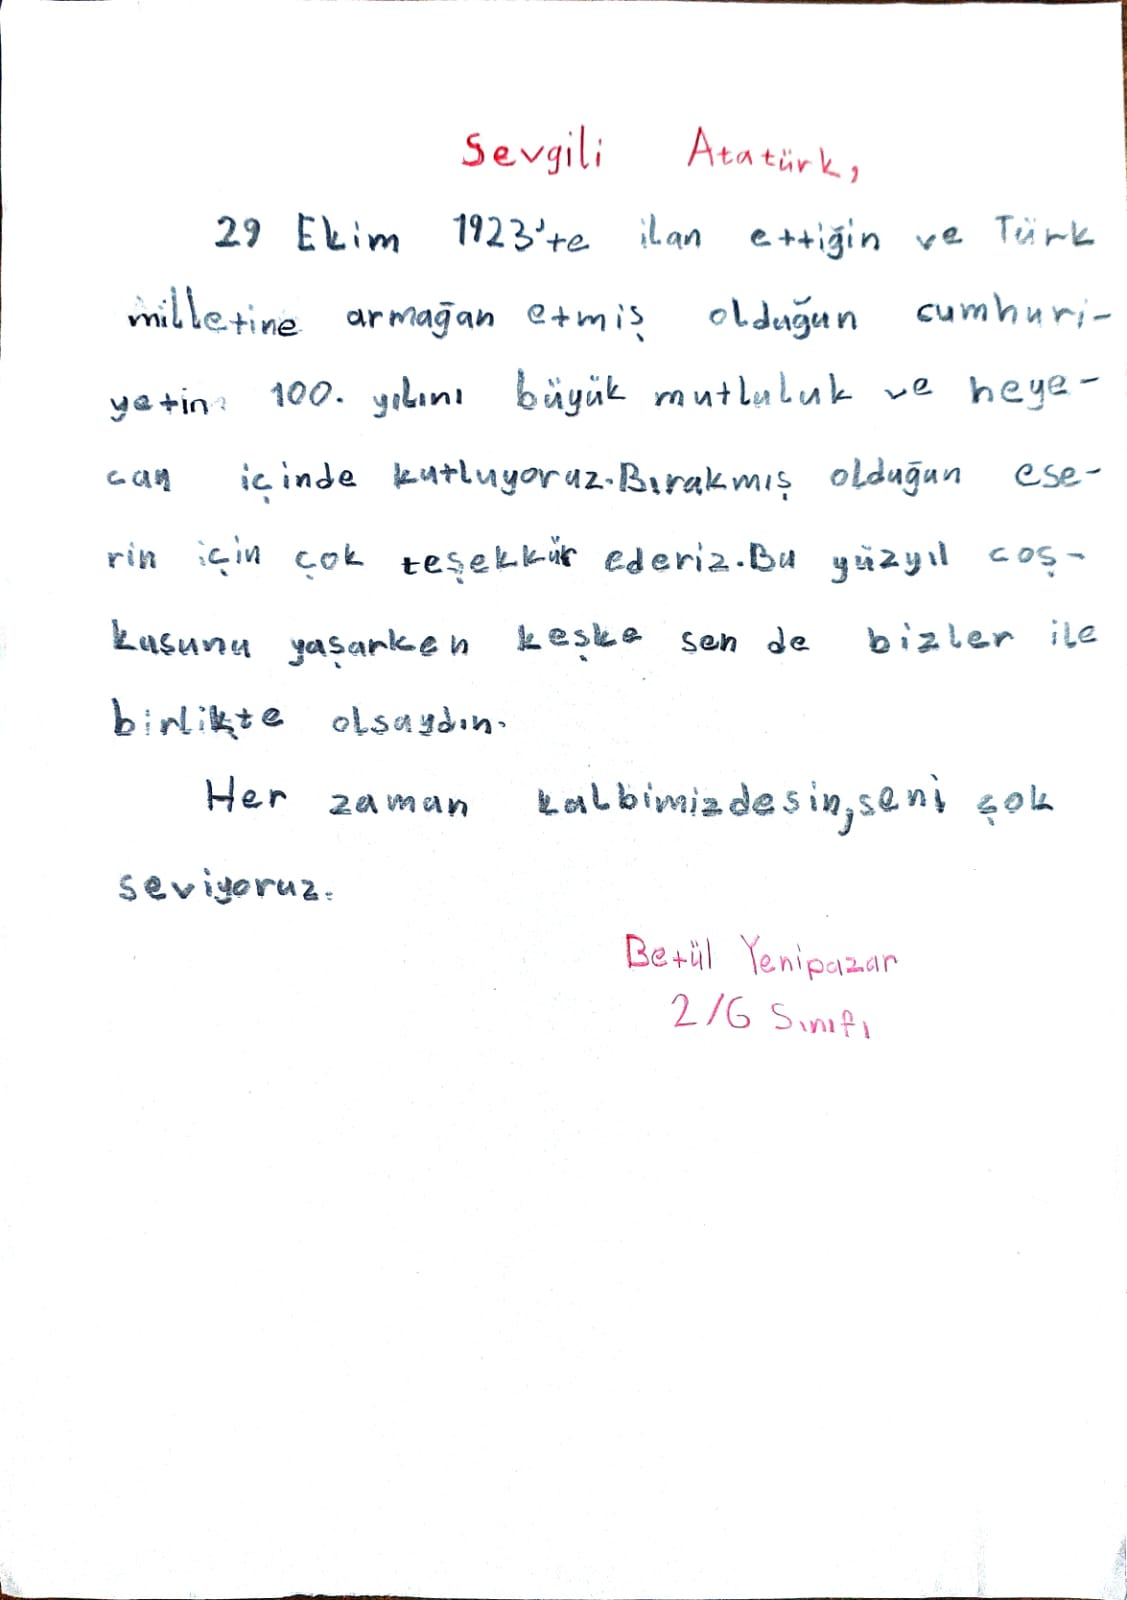 Sevgili Atatürk,
29 Ekim 1923'te ilan ettiğin ve Türk
milletine armağan etmiş olduğun cumhuri-
yetin 100. yılını büyük mutluluk ve heye-
can içinde kutluyoruz.Bırakmış olduğun ese-
rin için çok teşekkür ederiz.Bu yüzyıl coş-
kusunu yaşarken keşke sen de bizler ile
birlikte olsaydın.
Her zaman kalbimizdesin,seni çok
seviyoruz.
Betül Yenipazar
2/G Sınıfı